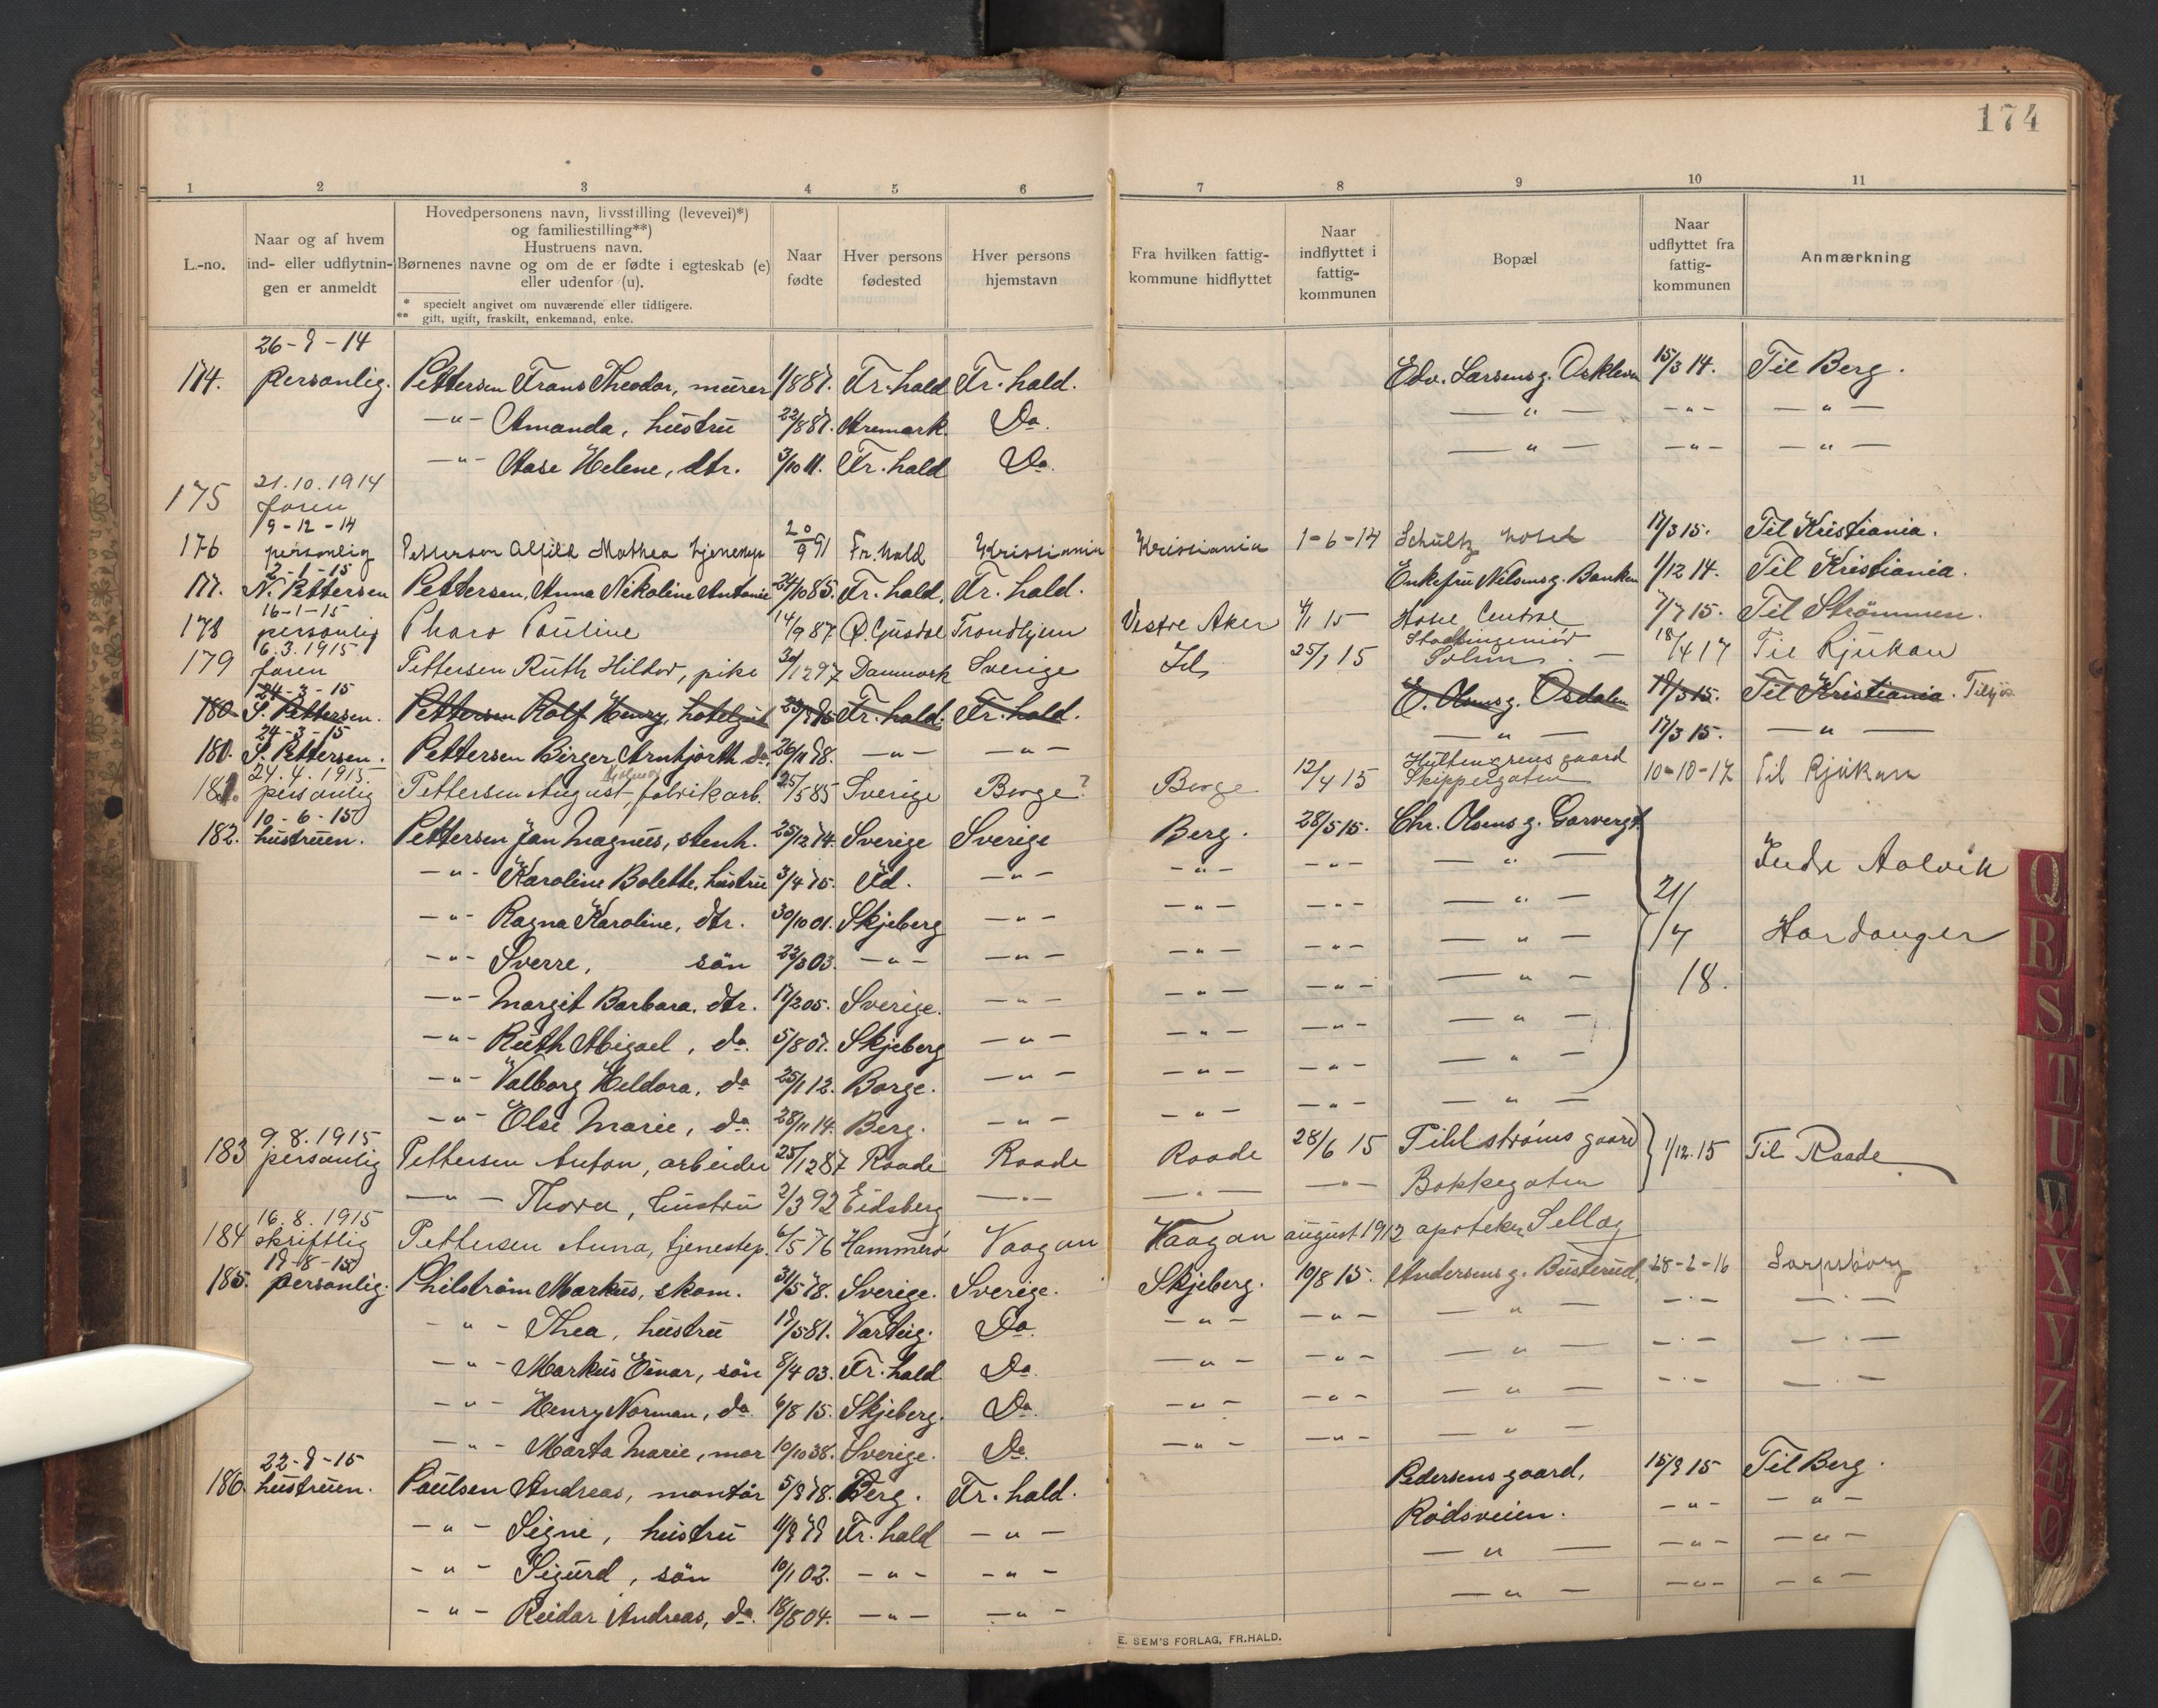 174
1 2 3 4 5 6 7 8 9 10 11
L.-no.
Naar og af hvem
ind- eller udflytnin-
gen er anmeldt
Hovedpersonens navn, livsstilling (levevei)*)
og familiestilling**)
Hustruens navn.
Børnenes navne og om de er fødte i egteskab (e)
eller udenfor (u).
* specielt angivet om nuværende eller tidligere.
** gift, ugift, fraskilt, enkemand, enke.
Naar
fødte
Hver persons
fødested
Hver persons
hjemstavn
Fra hvilken fattig-
kommune hidflyttet
Naar
indflyttet i
fattig-
kommunen
Bopæl
Naar
udflyttet fra
fattig-
kommunen
Anmærkning
26-9-14
174. personlig. Pettersen Frans Theodor, murer 1/8 87. Fr.hald Fr.hald. Edv. Larsens g. Oskleven 15/3 14. Til Berg.
-"- Amanda, hustru 22/8 87. Aremark. Do. -"- -"- -"-
-"- Aase Helene, dtr. 3/10 11. Fr.hald Do. -"- -"- -"-
21.10.1914
175 faren
9-12-14
176 personlig Pettersen Alfild Mathea tjenestep 20/9 91 Fr.hald Kristiania Kristiania 1-6-14 Schultz hotel 17/3 15. Til Kristiania.
2-1-15
177. N. Pettersen Pettersen, Anna Nikoline Antonie 24/10 85. Fr.hald. Fr.hald. Enkefru Nilsens g. Banken 1/12 14. Til Kristiania.
16-1-15
178 personlig Pharo Pauline 14/9 87 Ø. Gjusdal Trondhjem Vestre Aker 4/1 15 Hotel Central 7/7 15. Til Strømmen.
6.3.1915
179 faren Pettersen Ruth Hildur, pike 30/12 97 Danmark Sverige Id 25/1 15 Stadsingeniør
Solum 18/4 17 Til Rjukan
24-3-15
180. S. Pettersen. Pettersen Rolf Henry, hotelgut 23/9 95 Fr.hald. Fr.hald. E. Olsens g. Osdalen 17/3 15. Til Kristiania.
24-3-15
180. S. Pettersen. Pettersen Birger Arnhjorth. do. 26/11 98. -"- -"- -"- 17/3 15. -"-
24.4.1915.
181. personlig Pettersen August Hjalmar, fabrikarb. 25/5 85 Sverige Borge? Borge 12/4 15 Hultengrens gaard
Skippergaten 10-10-17 Til Rjukan
10-6-15
182. hustruen. Pettersen Jan Magnus, stenh. 25/12 74. Sverige Sverige Berg. 28/5 15. Chr. Olsens g. Garvergt.
-"- Karoline Bolette, hustru 3/4 75. Id. -"- -"- -"- -"- Indre Aalvik
-"- Ragna Karoline, dtr. 30/10 01. Skjeberg -"- -"- -"- -"- 21/
-"- Sverre, sön 22/3 03. -"- -"- -"- -"- -"- /7 Hardanger
-"- Margit Barbara. dtr. 17/2 05. Sverige. -"- -"- -"- -"- 18.
-"- Ruth Abigael, do. 5/8 07. Skjeberg -"- -"- -"- -"-
-"- Valborg Heldora, do 25/1 12. Borge. -"- -"- -"- -"-
-"- Else Marie, do. 28/11 14. Berg. -"- -"- -"- -"-
9.8.1915
183 personlig Pettersen Anton, arbeider 25/12 87 Raade Raade Raade 28/6 15 Pihlstrøms gaard 1/12.15 Til Raade
-"- Thora, hustru 2/3 92 Eidsberg -"- -"- -"- Bakkegaten
16.8.1915
184 skriftlig Pettersen Anna, tjenestep. 6/5 76 Hammerø Vaagan Vaagan august 1912 apoteker Selläg
19-8-15
185. personlig. Philström Markus, skom. 31/5 78. Sverige. Sverige. Skjeberg. 10/8 15. Andersens g. Busterud, 28-2-16 Sarpsborg
-"- Thea, hustru 19/5 81. Varteig. Do. -"- -"- -"- -"- -"-
-"- Markus Einar, sön 8/4 03. Fr.hald Do. -"- -"- -"- -"- -"-
-"- Henry Norman, do. 6/8 15. Skjeberg. Do. -"- -"- -"- -"- -"-
-"- Marta Marie, mor 10/10 38. Sverige. Do. -"- -"- -"-
22-9-15
186. hustruen. Paulsen Andreas, montör 5/9 78. Berg. Fr.hald. Pedersens gaard, 15/9 15 Til Berg.
-"- Signe, hustru 11/9 79 Fr.hald -"- Rödsveien. -"- -"-
-"- Sigurd, sön 10/1 02. -"- -"- -"- -"- -"-
-"- Reidar Andreas, do. 18/8 04. -"- -"- -"- -"- -"-
E. SEM'S FORLAG, FR.HALD.
Q
R
S
T
U
W
X
Y
Z
Æ
Ø